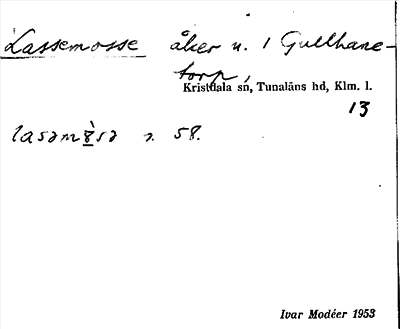 Lassemosse åker u. 1 Gullhane-
torp,
Kristdala sn, Tunaläns hd, Klm. l.
13
lasəmòsə s. 58.
Ivar Modéer 1953